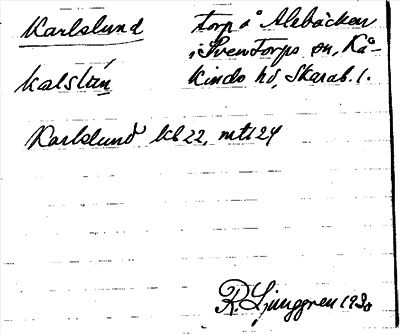 Karlslund torp å Alebäcken
i Sventorps sn, Kå-
kalslùn kinds hd, Skarab. l.
Karlslund kb 22, mtl 24
R. Ljunggren 1930